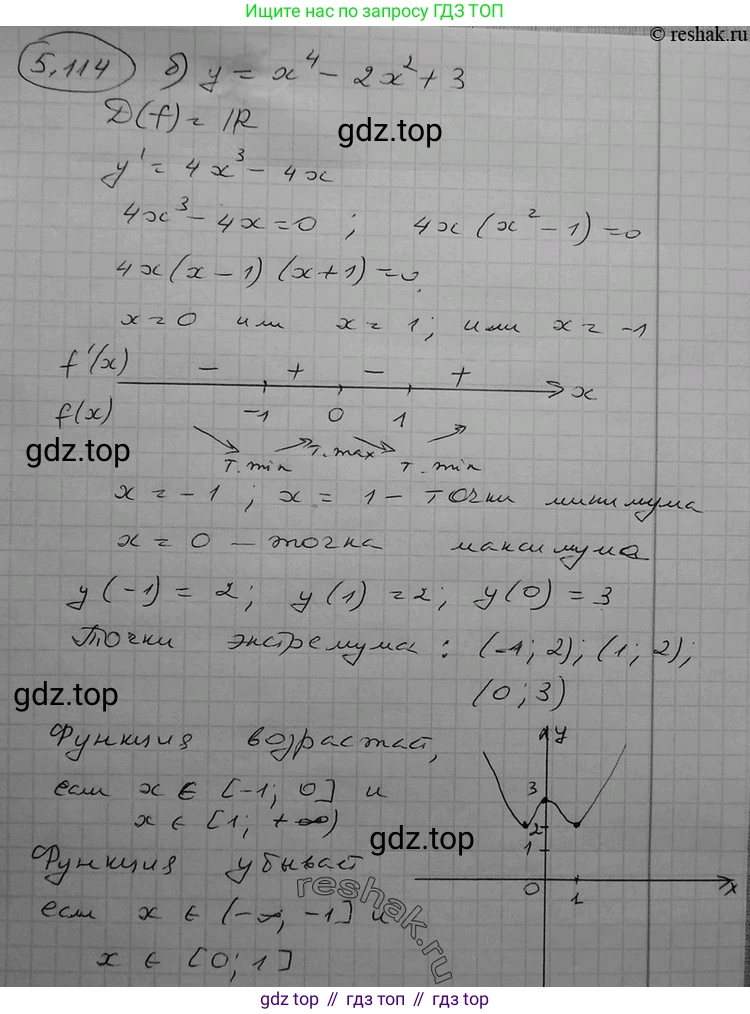 Ищите нас по запросу ГДЗ ТОП
© reshak.ru
5.114 б) y = x⁴ - 2x² + 3
D(f) = ℝ
gdz.top
y' = 4x³ - 4x
4x³ - 4x = 0 ; 4x (x² - 1) = 0
4x (x - 1) (x + 1) = 0
x = 0 или x = 1 ; или x = -1
f'(x) - + - +
x
f(x) -1 0 1
gdz.top
т. min т. max т. min
x = -1 ; x = 1 - точки минимума
x = 0 - точка максимума
y (-1) = 2 ; y (1) = 2 ; y (0) = 3
Точки экстремума : (-1; 2); (1; 2);
(0; 3)
gdz.top
Функция возрастает,
y
если x ∈ [-1; 0] и
3
x ∈ [1; +∞)
2
gdz.top
1
Функция убывает
0 1 x
reshak.ru
если x ∈ (-∞; -1] и
x ∈ [0; 1]
gdz.top // гдз топ // гдз.top